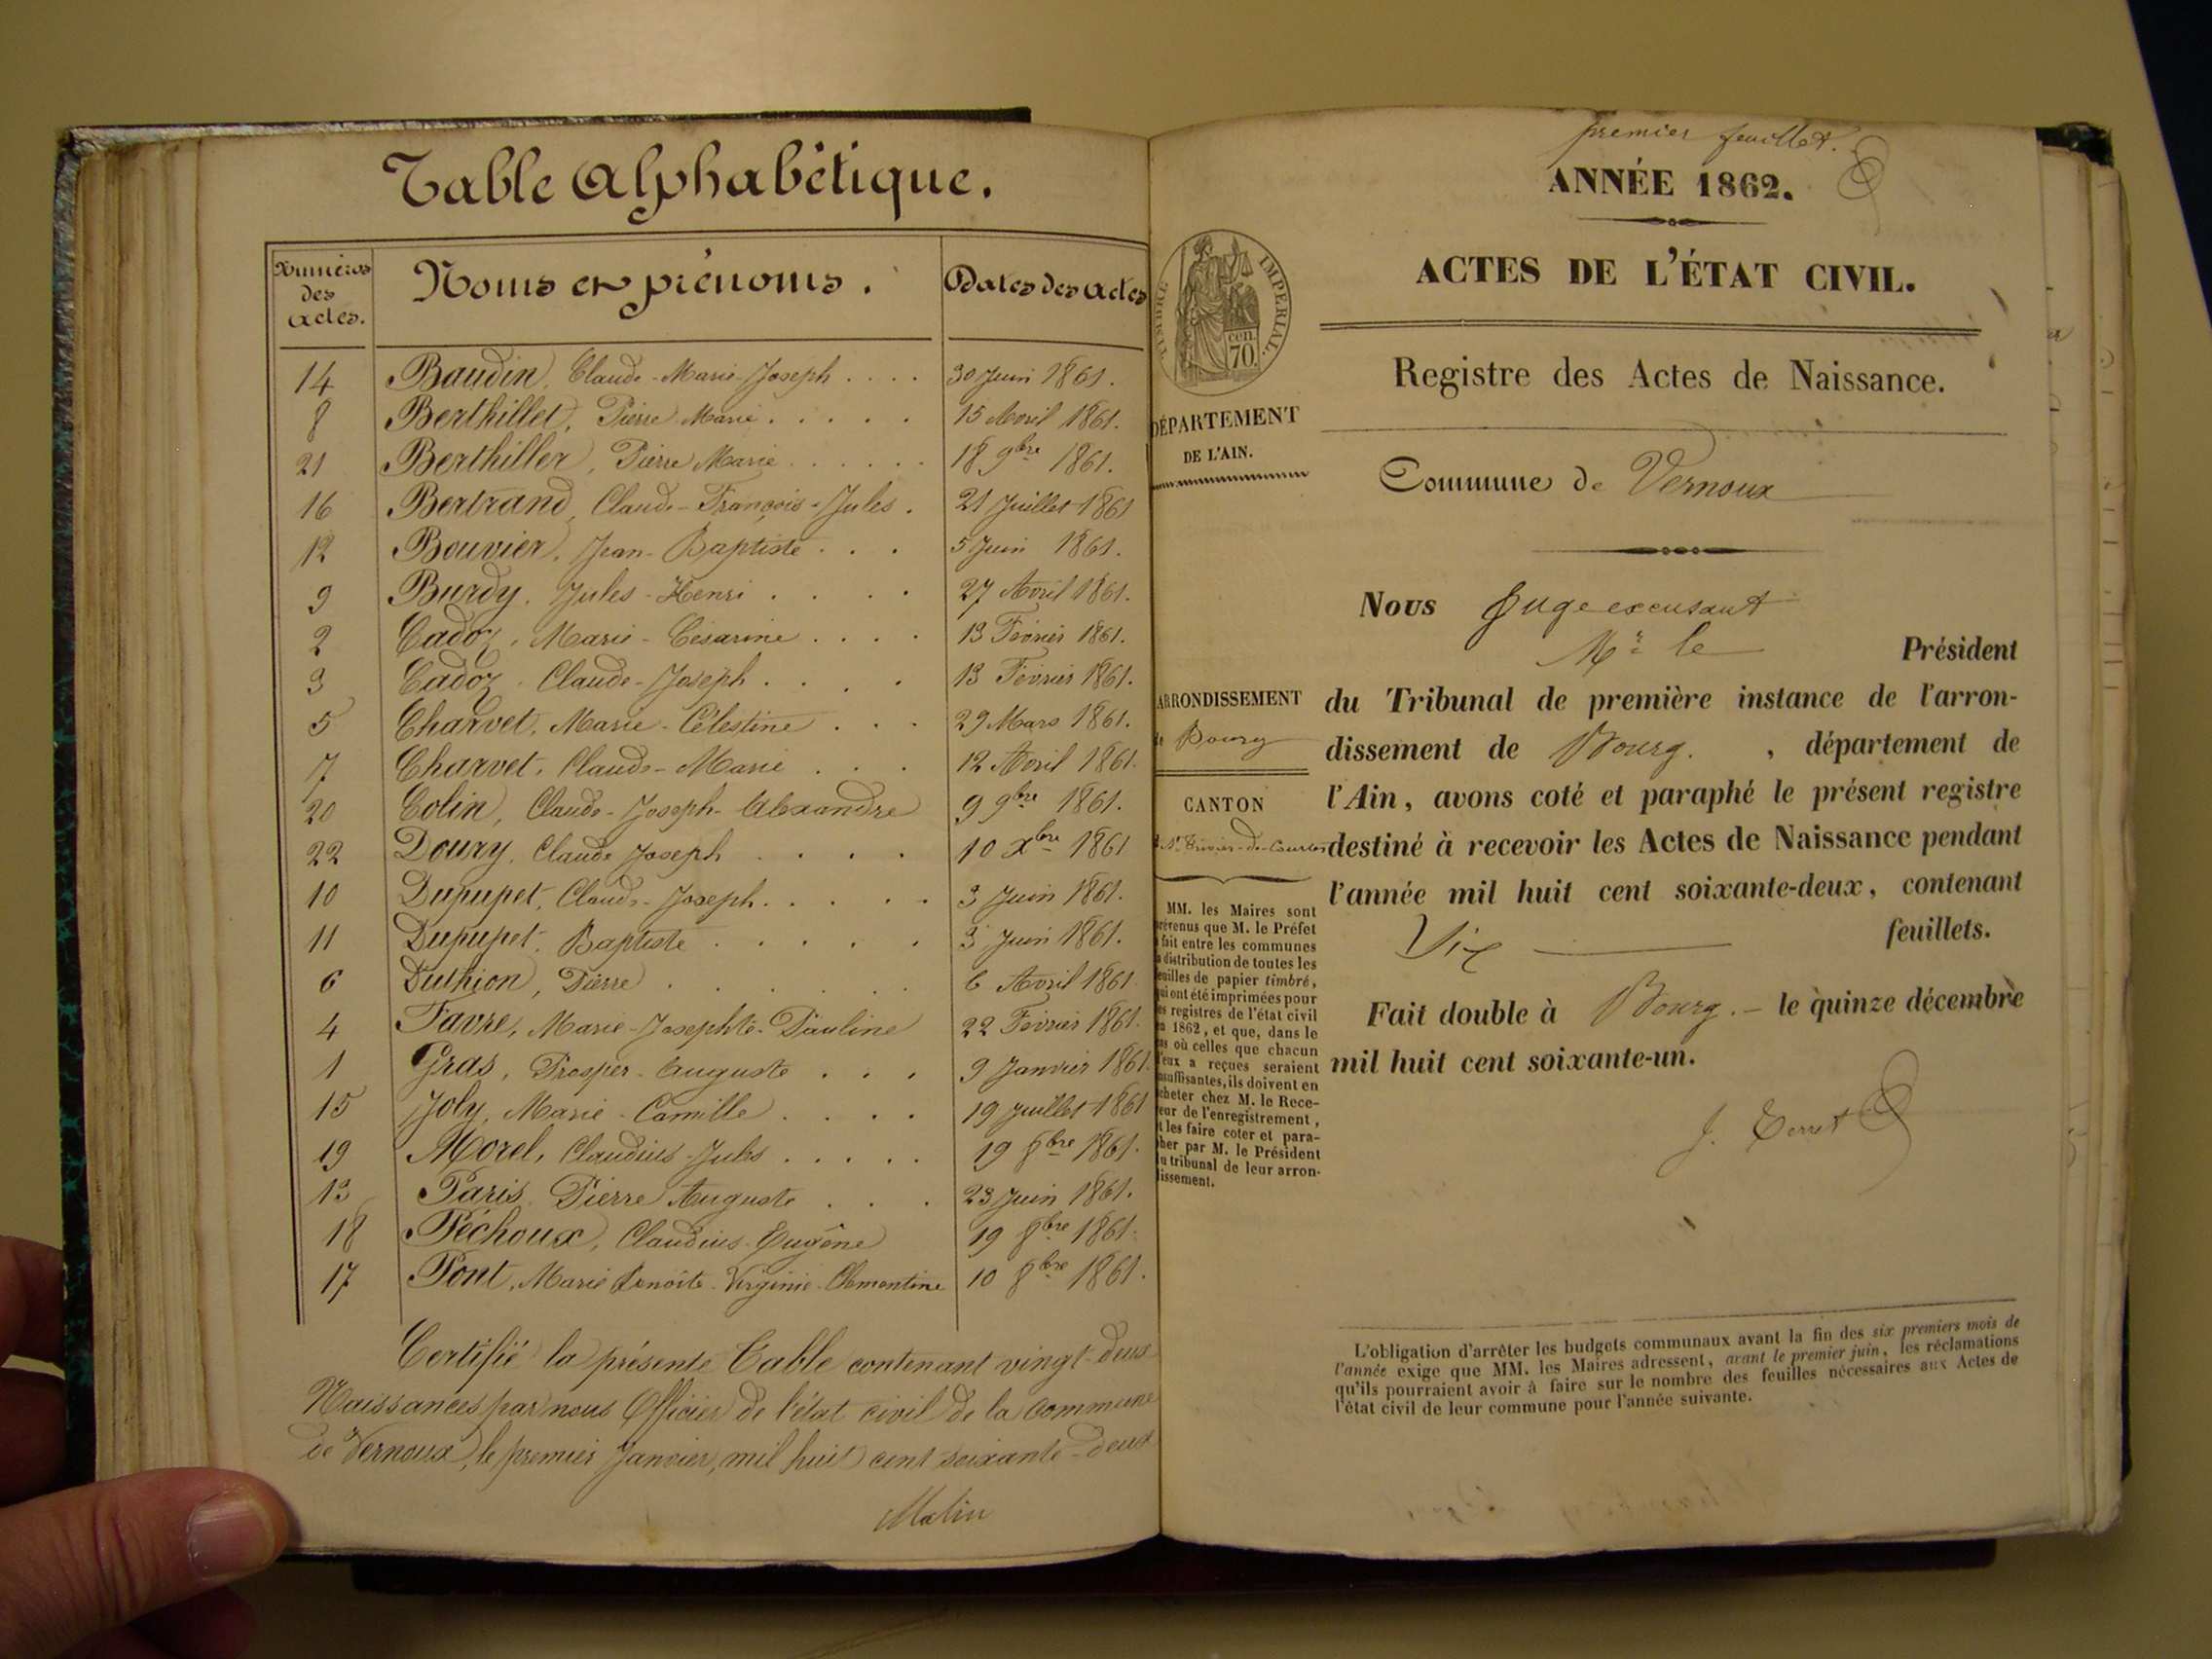 Table Alphabétique.
Numéros des actes. Noms et prénoms. Dates des actes
14 Baudin, Claude-Marie-Joseph .... 30 Juin 1861.
8 Berthillet, Pierre Marie ..... 15 Avril 1861.
21 Berthillier, Pierre Marie ...... 18 9bre 1861.
16 Bertrand, Claude-François-Jules. 21 Juillet 1861
12 Bouvier, Jean-Baptiste ... 5 Juin 1861.
9 Burdy, Jules-Henri .... 27 Avril 1861.
2 Cadoz, Marie-Césarine .... 13 Février 1861.
3 Cadoz, Claude-Joseph .... 13 Février 1861.
5 Charvet, Marie-Célestine ... 29 Mars 1861.
7 Charvet, Claude-Marie ... 12 Avril 1861.
20 Colin, Claude-Joseph-Alexandre 9 9bre 1861.
22 Doury, Claude Joseph .... 10 Xbre 1861
10 Dupupet, Claude-Joseph ..... 3 Juin 1861.
11 Dupupet, Baptiste ..... 3 Juin 1861.
6 Duthion, Pierre ...... 6 Avril 1861.
4 Favre, Marie-Josephte-Pauline 22 Février 1861.
1 Gras, Prosper-Auguste ... 9 Janvier 1861.
15 Joly, Marie-Camille .... 19 Juillet 1861
19 Morel, Claudius-Jules ..... 19 8bre 1861.
13 Paris, Pierre Auguste ... 23 Juin 1861.
18 Péchoux, Claudius-Eugène 19 8bre 1861.
17 Pont, Marie Benoîte-Virginie-Clémentine 10 8bre 1861.
Certifié la présente Table contenant vingt-deux
Naissances par nous Officier de l'état civil de la commune
de Vernoux, le premier Janvier, mil huit cent soixante-deux
premier feuillet.
ANNÉE 1862.
ACTES DE L'ÉTAT CIVIL.
TIMBRE IMPERIAL.
cen
70.
Registre des Actes de Naissance.
DÉPARTEMENT
DE L'AIN.
Commune de Vernoux
Nous Juge excusant
Mr le Président
du Tribunal de première instance de l'arron-
dissement de Bourg. , département de
l'Ain, avons coté et paraphé le présent registre
destiné à recevoir les Actes de Naissance pendant
l'année mil huit cent soixante-deux, contenant
Six feuillets.
Fait double à Bourg. - le quinze décembre
mil huit cent soixante-un.
ARRONDISSEMENT
de Bourg
CANTON
de St Trivier-de-Courtes
MM. les Maires sont
prévenus que M. le Préfet
a fait entre les communes
la distribution de toutes les
feuilles de papier timbré,
qui ont été imprimées pour
les registres de l'état civil
en 1862, et que, dans le
cas où celles que chacun
d'eux a reçues seraient
insuffisantes, ils doivent en
acheter chez M. le Rece-
veur de l'enregistrement,
et les faire coter et para-
pher par M. le Président
du tribunal de leur arron-
dissement.
L'obligation d'arrêter les budgets communaux avant la fin des six premiers mois de
l'année exige que MM. les Maires adressent, avant le premier juin, les réclamations
qu'ils pourraient avoir à faire sur le nombre des feuilles nécessaires aux Actes de
l'état civil de leur commune pour l'année suivante.